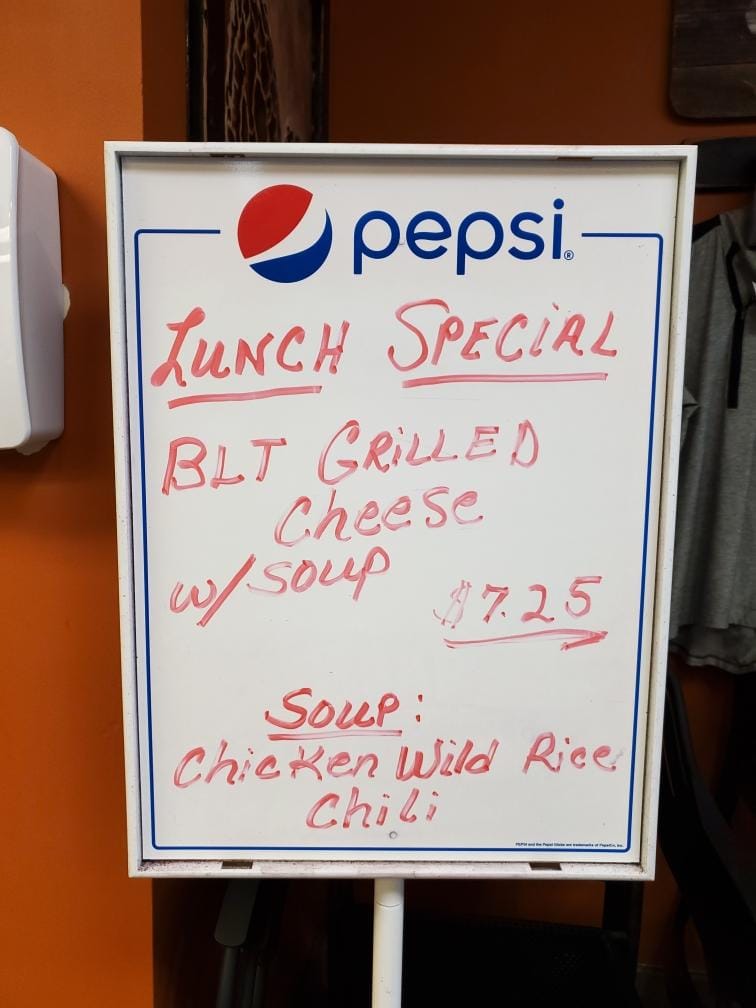 pepsi®
LUNCH SPECIAL
BLT GRILLED
Cheese
w/SOUP
$7.25
SOUP:
Chicken Wild Rice
Chili
PEPSI and the Pepsi Globe are trademarks of PepsiCo, Inc.